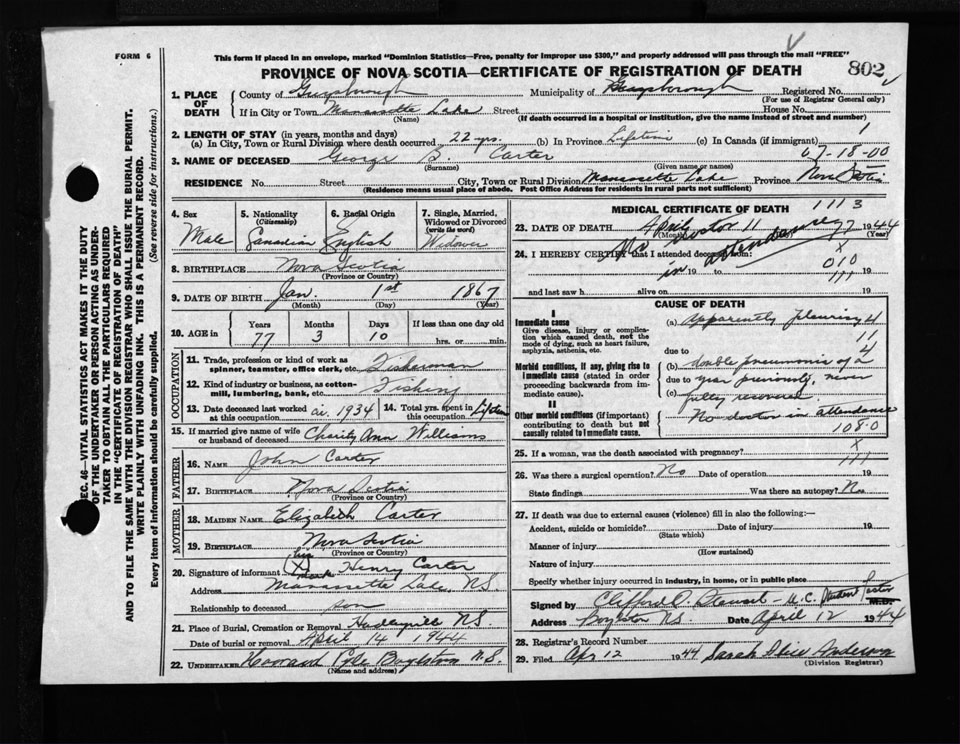 FORM 6
This form if placed in an envelope, marked "Dominion Statistics—Free, penalty for improper use $300," and properly addressed will pass through the mail "FREE"
PROVINCE OF NOVA SCOTIA—CERTIFICATE OF REGISTRATION OF DEATH
802
1. PLACE OF DEATH
County of Guysborough Municipality of Guysborough Registered No.
(For use of Registrar General only)
If in City or Town Manassette Lake Street House No.
(Name) (If death occurred in a hospital or institution, give the name instead of street and number)
2. LENGTH OF STAY (in years, months and days)
(a) In City, Town or Rural Division where death occurred 22 yrs. (b) In Province Lifetime (c) In Canada (if immigrant)
3. NAME OF DECEASED George B. Carter 67-18-00
(Surname) (Given name or names)
RESIDENCE No. Street City, Town or Rural Division Manassette Lake Province Nova Scotia
(Residence means usual place of abode. Post Office Address for residents in rural parts not sufficient)
4. Sex Male
5. Nationality (Citizenship) Canadian
6. Racial Origin English
7. Single, Married, Widowed or Divorced (write the word) Widower
8. BIRTHPLACE Nova Scotia
(Province or Country)
9. DATE OF BIRTH Jan. 1st 1867
(Month) (Day) (Year)
10. AGE in Years Months Days If less than one day old
77 3 10 hrs. or min.
OCCUPATION
11. Trade, profession or kind of work as spinner, teamster, office clerk, etc. Fisherman
12. Kind of industry or business, as cotton-mill, lumbering, bank, etc. Fishing
13. Date deceased last worked at this occupation ca. 1934
14. Total yrs. spent in this occupation Lifetime
15. If married give name of wife or husband of deceased Charity Ann Williams
FATHER
16. NAME John Carter
17. BIRTHPLACE Nova Scotia
(Province or Country)
MOTHER
18. MAIDEN NAME Elizabeth Carter
19. BIRTHPLACE Nova Scotia
(Province or Country)
20. Signature of informant his (X) mark Henry Carter
Address Manassette Lake, N.S.
Relationship to deceased son
21. Place of Burial, Cremation or Removal N.S.
Date of burial or removal April 14 1944
22. UNDERTAKER Boylston N.S.
(Name and address)
MEDICAL CERTIFICATE OF DEATH 1113
23. DATE OF DEATH April 11 1944
(Month) (Year)
24. I HEREBY CERTIFY that I attended deceased from:
No doctor in attendance
19 to 19
010
111
and last saw h alive on 19
CAUSE OF DEATH
I
Immediate cause
Give disease, injury or complication which caused death, not the mode of dying, such as heart failure, asphyxia, asthenia, etc.
Morbid conditions, if any, giving rise to immediate cause (stated in order proceeding backwards from immediate cause).
II
Other morbid conditions (if important) contributing to death but not causally related to immediate cause.
(a) Apparently pleurisy
due to
(b) double pneumonia of a
due to year previously, never
(c) fully recovered.
No doctor in attendance
108.0
25. If a woman, was the death associated with pregnancy? X
26. Was there a surgical operation? No Date of operation 19
State findings Was there an autopsy? No
27. If death was due to external causes (violence) fill in also the following:—
Accident, suicide or homicide? Date of injury 19
(State which)
Manner of injury
(How sustained)
Nature of injury
Specify whether injury occurred in industry, in home, or in public place
Signed by Clifford U.C. Student Pastor M.D.
Address Boylston N.S. Date April 12 1944
28. Registrar's Record Number
29. Filed Apr 12 1944 Sarah Anderson
(Division Registrar)
SEC. 46—VITAL STATISTICS ACT MAKES IT THE DUTY
OF THE UNDERTAKER OR PERSON ACTING AS UNDER-
TAKER TO OBTAIN ALL THE PARTICULARS REQUIRED
IN THE "CERTIFICATE OF REGISTRATION OF DEATH"
AND TO FILE THE SAME WITH THE DIVISION REGISTRAR WHO SHALL ISSUE THE BURIAL PERMIT.
WRITE PLAINLY WITH UNFADING INK. THIS IS A PERMANENT RECORD.
Every item of information should be carefully supplied. (See reverse side for instructions.)